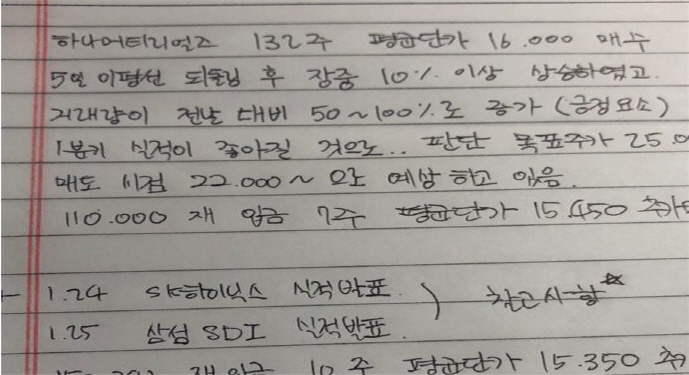 하나머티리얼즈 132주 평균단가 16.000 매수
5일 이평선 되돌림 후 장중 10% 이상 상승하였고.
거래량이 전날 대비 50~100%로 증가 (긍정요소)
1분기 실적이 좋아질 것으로.. 판단 목표주가 25.0
매도 시점 22.000~ 으로 예상 하고 있음.
110.000 재 입금 7주 평균단가 15.450 추가
1.24 SK하이닉스 실적발표
1.25 삼성 SDI 실적발표.
) 참고사항☆
재 입금 10주 평균단가 15.350 추